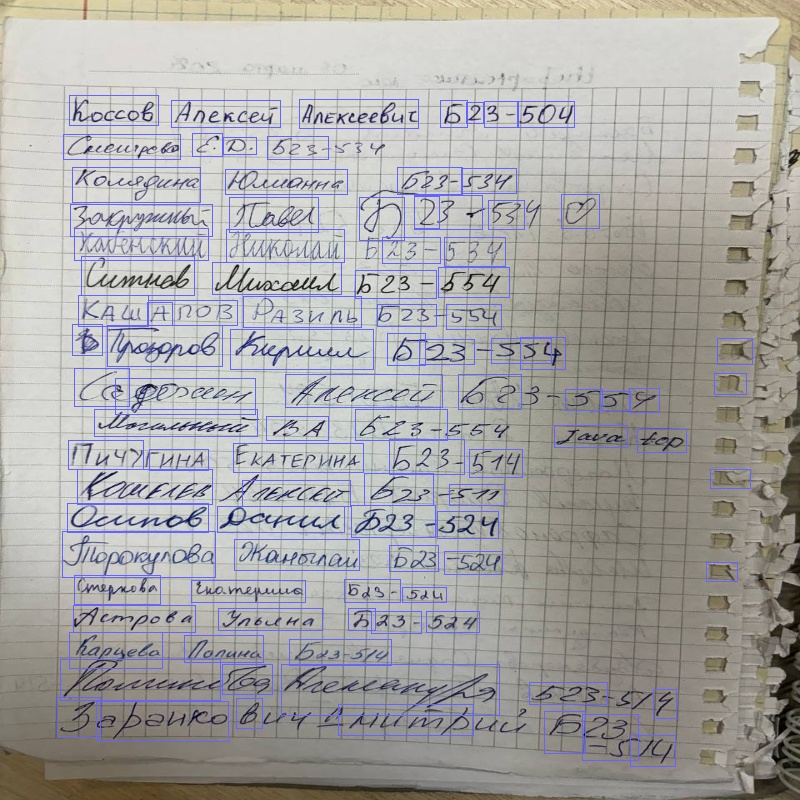 Коссов Алексей Алексеевич Б23-504
Е.Д. Б23-534
Колядина Юлианна Б23-534
Закружный Павел Б 23-534 ♡
Каменский Николай Б23-534
Ситнев Михаил Б23-554
КАШАПОВ РАЗИЛЬ Б23-554
Прозоров Кирилл Б23-554
Алексей Б23-554
Могильный ВА Б23-554 Java top
ПИЧУГИНА ЕКАТЕРИНА Б23-514
Кошелев Алексей Б23-511
Осипов Данил Б23-524
Торокулова Жанылай Б23-524
Стеркова Екатерина Б23-524
Астрова Ульяна Б23-524
Карцева Полина Б23-514
Александра Б23-514
Заранкович Дмитрий Б23
-514